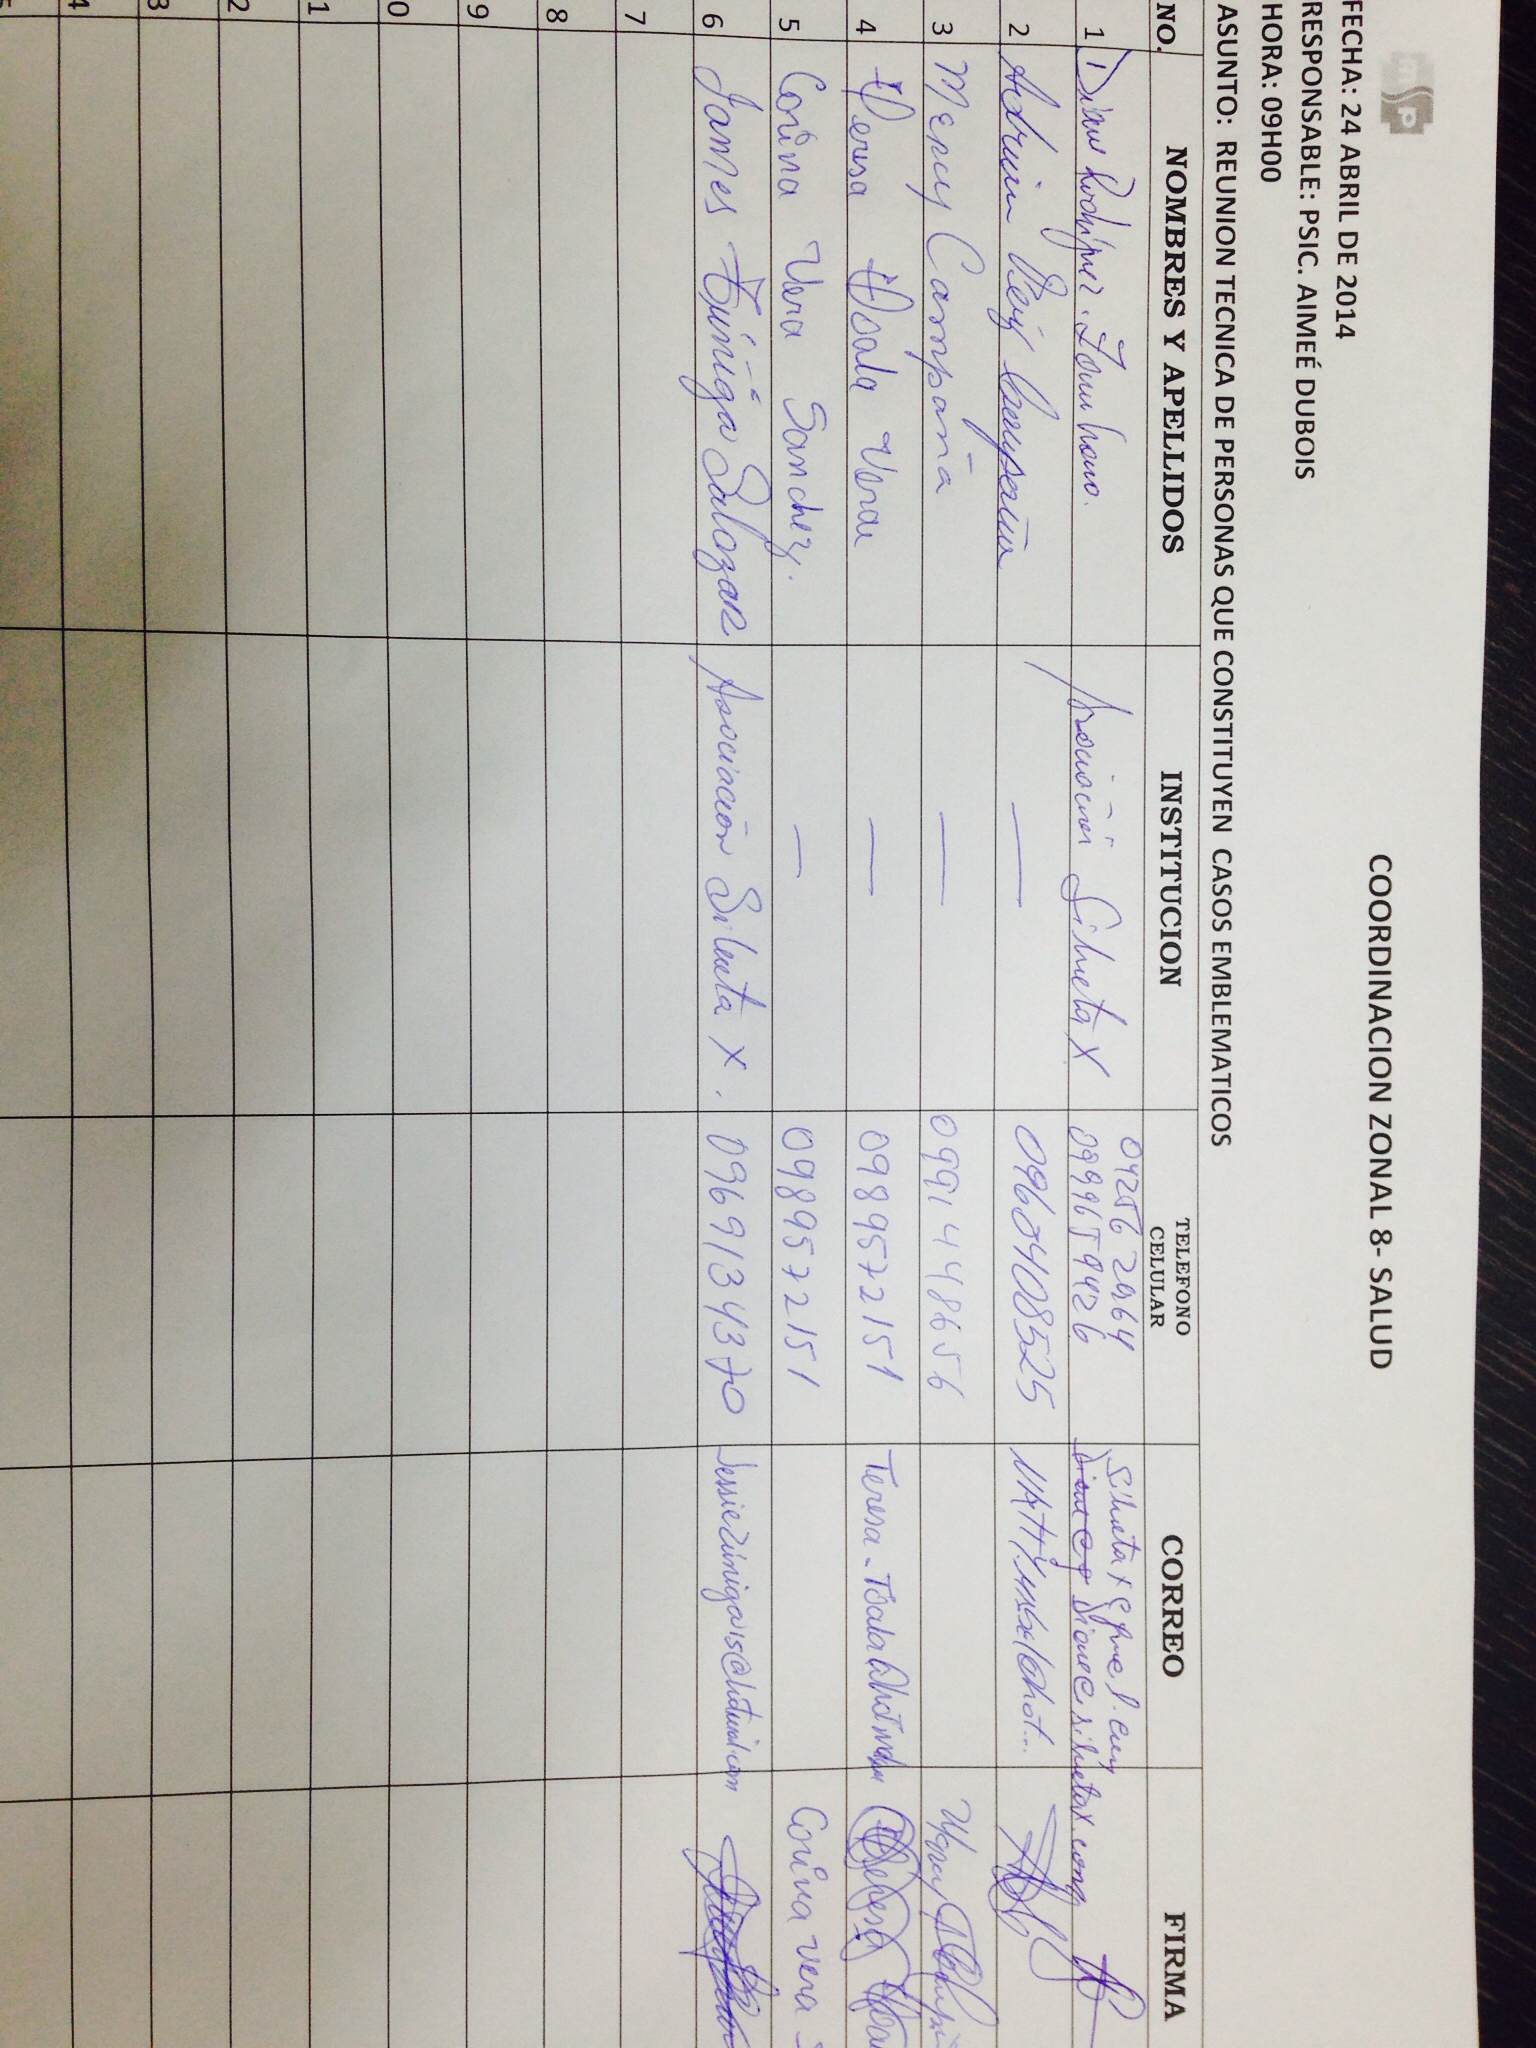 msp
COORDINACION ZONAL 8- SALUD
FECHA: 24 ABRIL DE 2014
RESPONSABLE: PSIC. AIMEÉ DUBOIS
HORA: 09H00
ASUNTO: REUNION TECNICA DE PERSONAS QUE CONSTITUYEN CASOS EMBLEMATICOS
NO. NOMBRES Y APELLIDOS INSTITUCION TELEFONO CELULAR CORREO FIRMA
1 Diane Rodríguez Zambrano. Asociación Silueta X 042562964
0999659426
2 Adrian 0960408525
3 Mercy Campaña — 0991448656 Mercy
4 Teresa Tóala Vera — 0989572151 Teresa
5 Corina Vera Sanchez. — 0989572151 Corina Vera
6 James Zúñiga Salazar Asociación Silueta X. 0969134370 Jessiezuniga15@hotmail.com
7
8
9
0
1
2
3
4
5